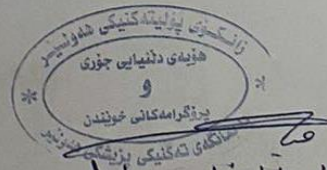 زانکۆی پۆلیتەکنیکی هەولێر
هۆبەی دڵنیایی جۆری
و
پرۆگرامەکانی خوێندن
تەکنیکی پزیشکی هەولێر